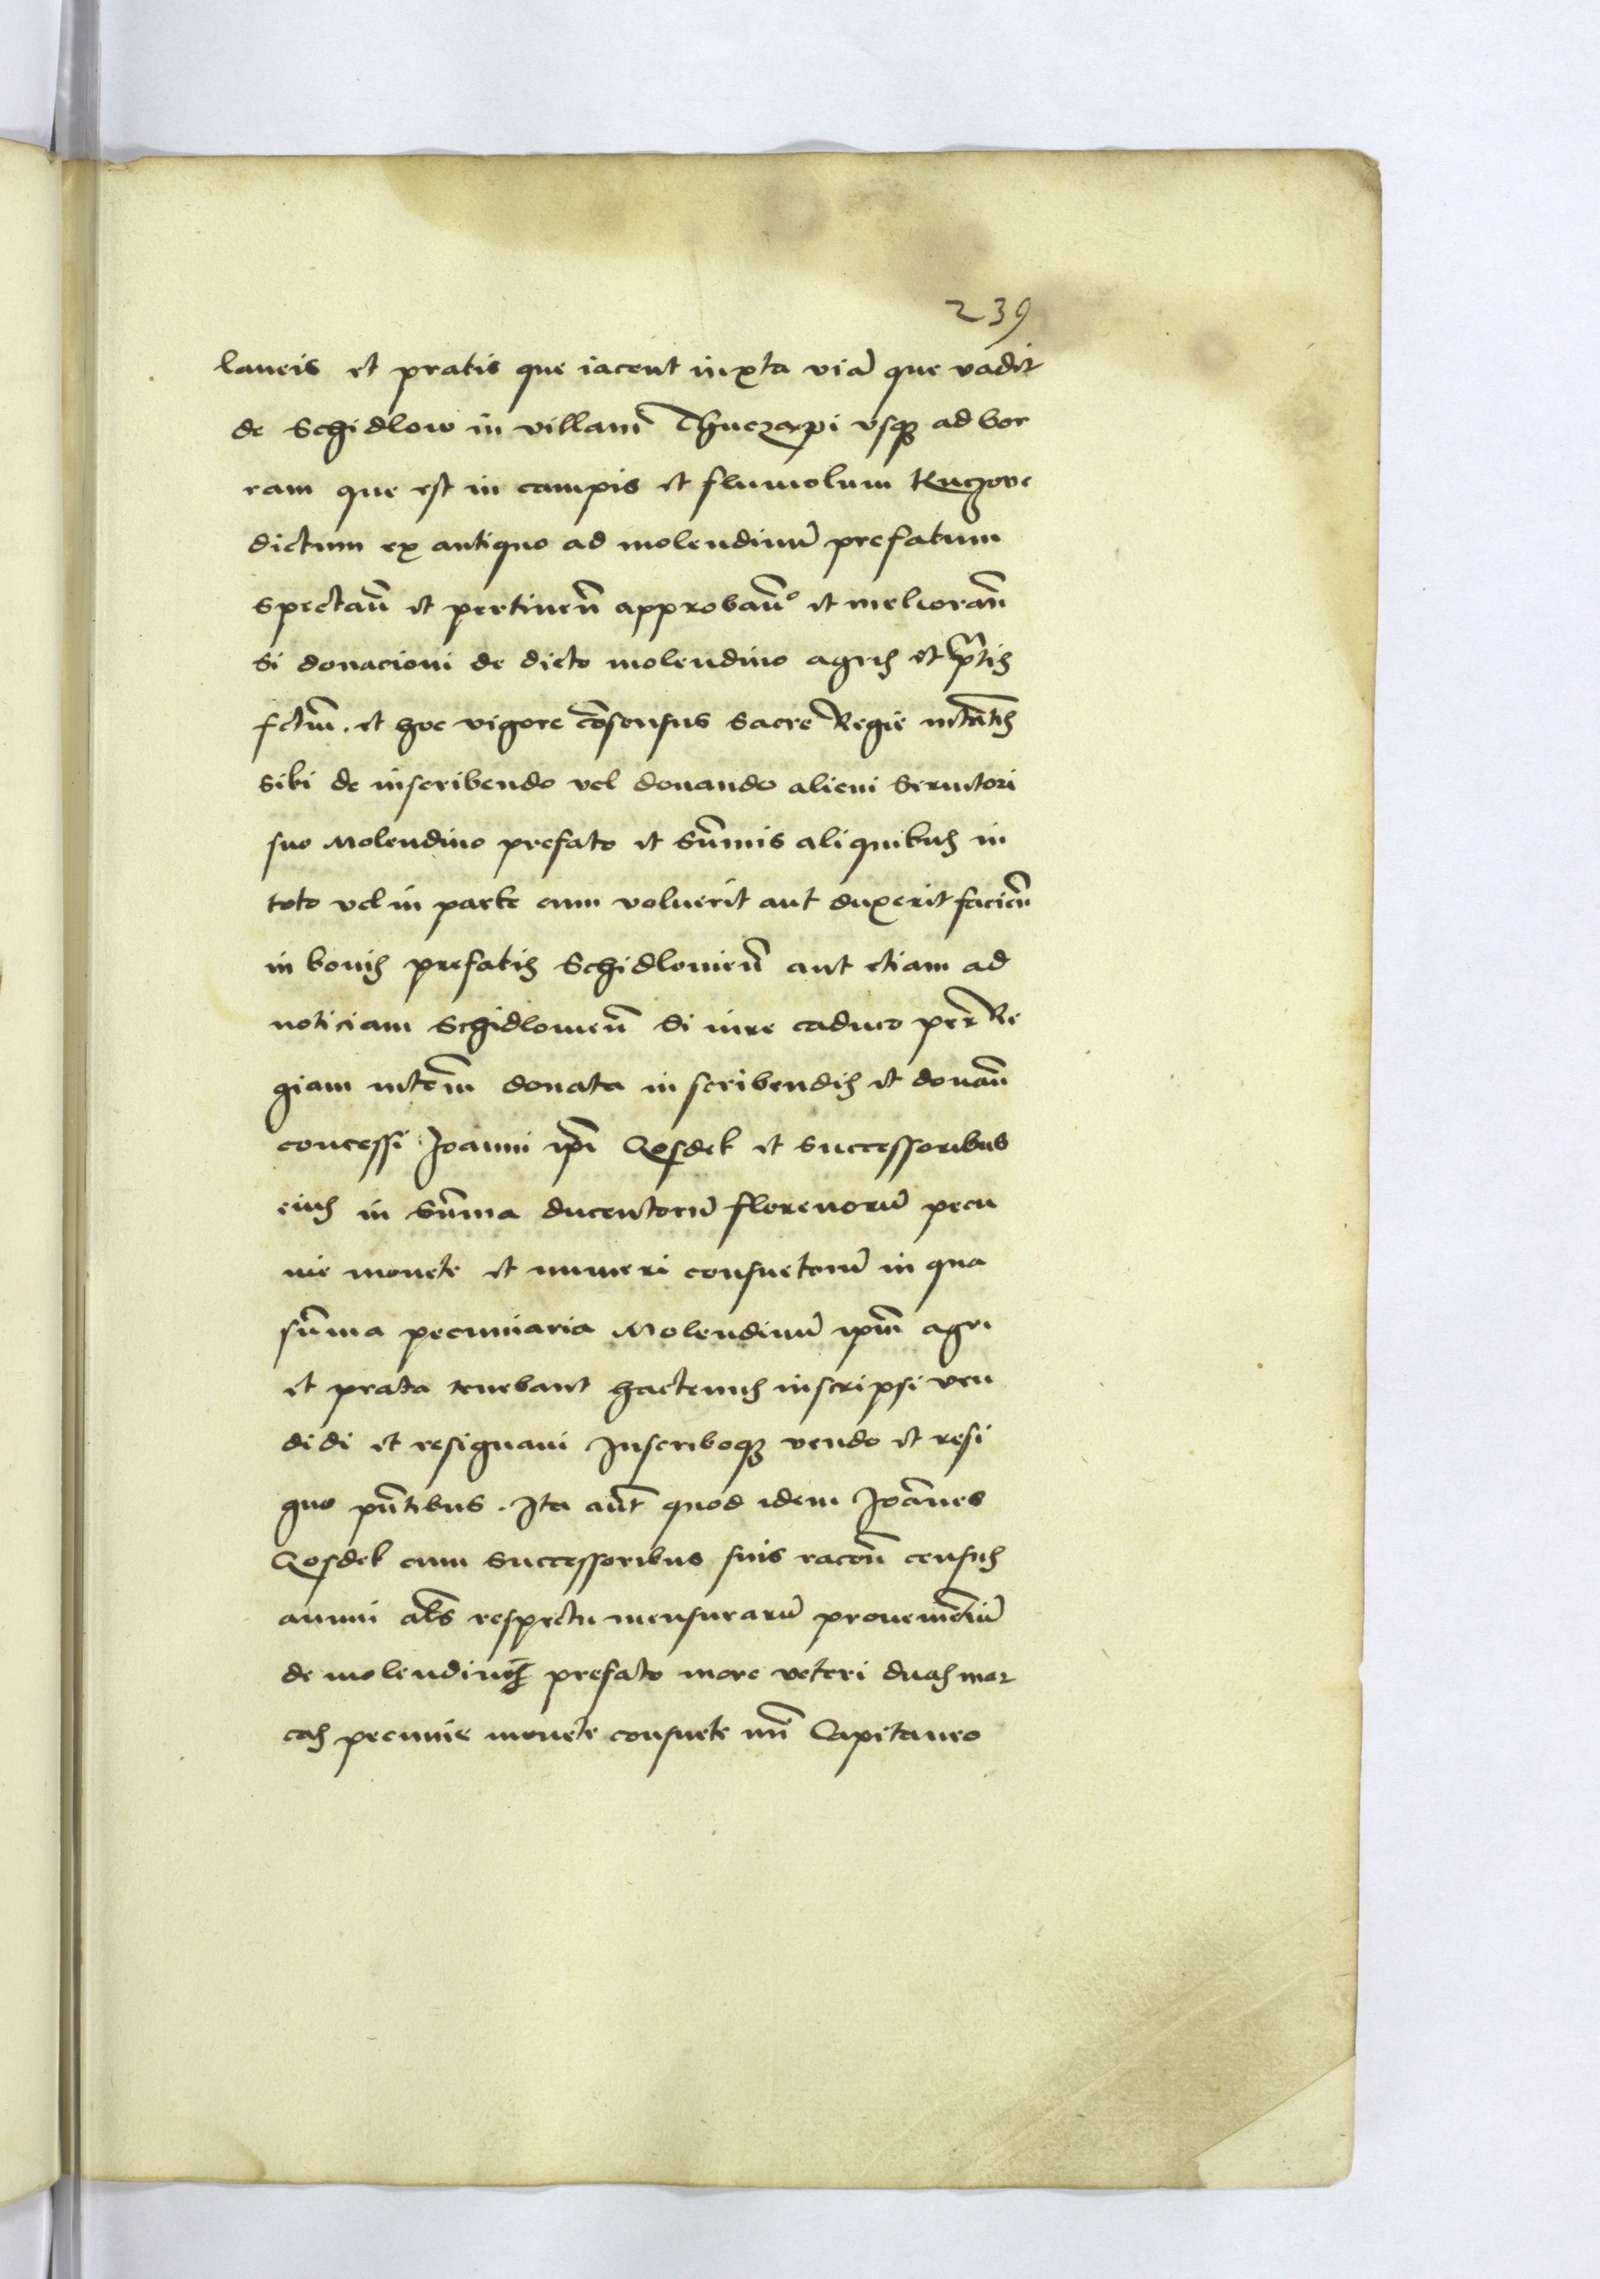 239
laneis et pratis que iacent iuxta viã que vadit
de Schidlow in villam Thuczapi vsqꝫ ad bor
ram que est in campis et fluuiolum Kugove
dictum ex antiquo ad molendinũ prefatum
Spectañ et pertineñ approbañᵒ et meliorañ
Si donacioni de dicto molendino agris et ptis
fctm̃. et hoc vigore cõsensus Sacre Regie mtãtis
Sibi de inscribendo vel donando alicui Seruitori
suo Molendino prefato et Sũmis aliquibus in
toto vel in parte cum voluerit aut duxerit facieñ
in bonis prefatis Schidlovieñ aut etiam ad
noticiam Schidlovieñ Si iure caduco per Re
giam mtem̃ donata inscribendis et donañ
concessi Joanni ipĩ Qosdek et Successoribus
eius in Sũma ducentorũ florenorũ pecu
nie monete et numeri consuetorũ in qua
sũma pecuniaria Molendinũ ipm̃ agri
et prata tenebant hactenus inscripsi ven
didi et resignaui Inscriboqꝫ vendo et resi
gno pñtibus. Ita aũt quod idem Joãnes
Qosdek cum Successoribus suis racoñ census
annui als respectu mensurarũ proueniẽtiũ
de molendino prefato more veteri duas mar
cas pecunie monete consuete mi Capitaneo